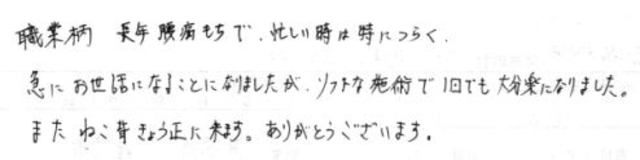 職業柄 長年腰痛もちで、忙しい時は特につらく、
急にお世話になることになりましたが、ソフトな施術で1回でも大分楽になりました。
またねこ背きょう正に来ます。ありがとうございます。